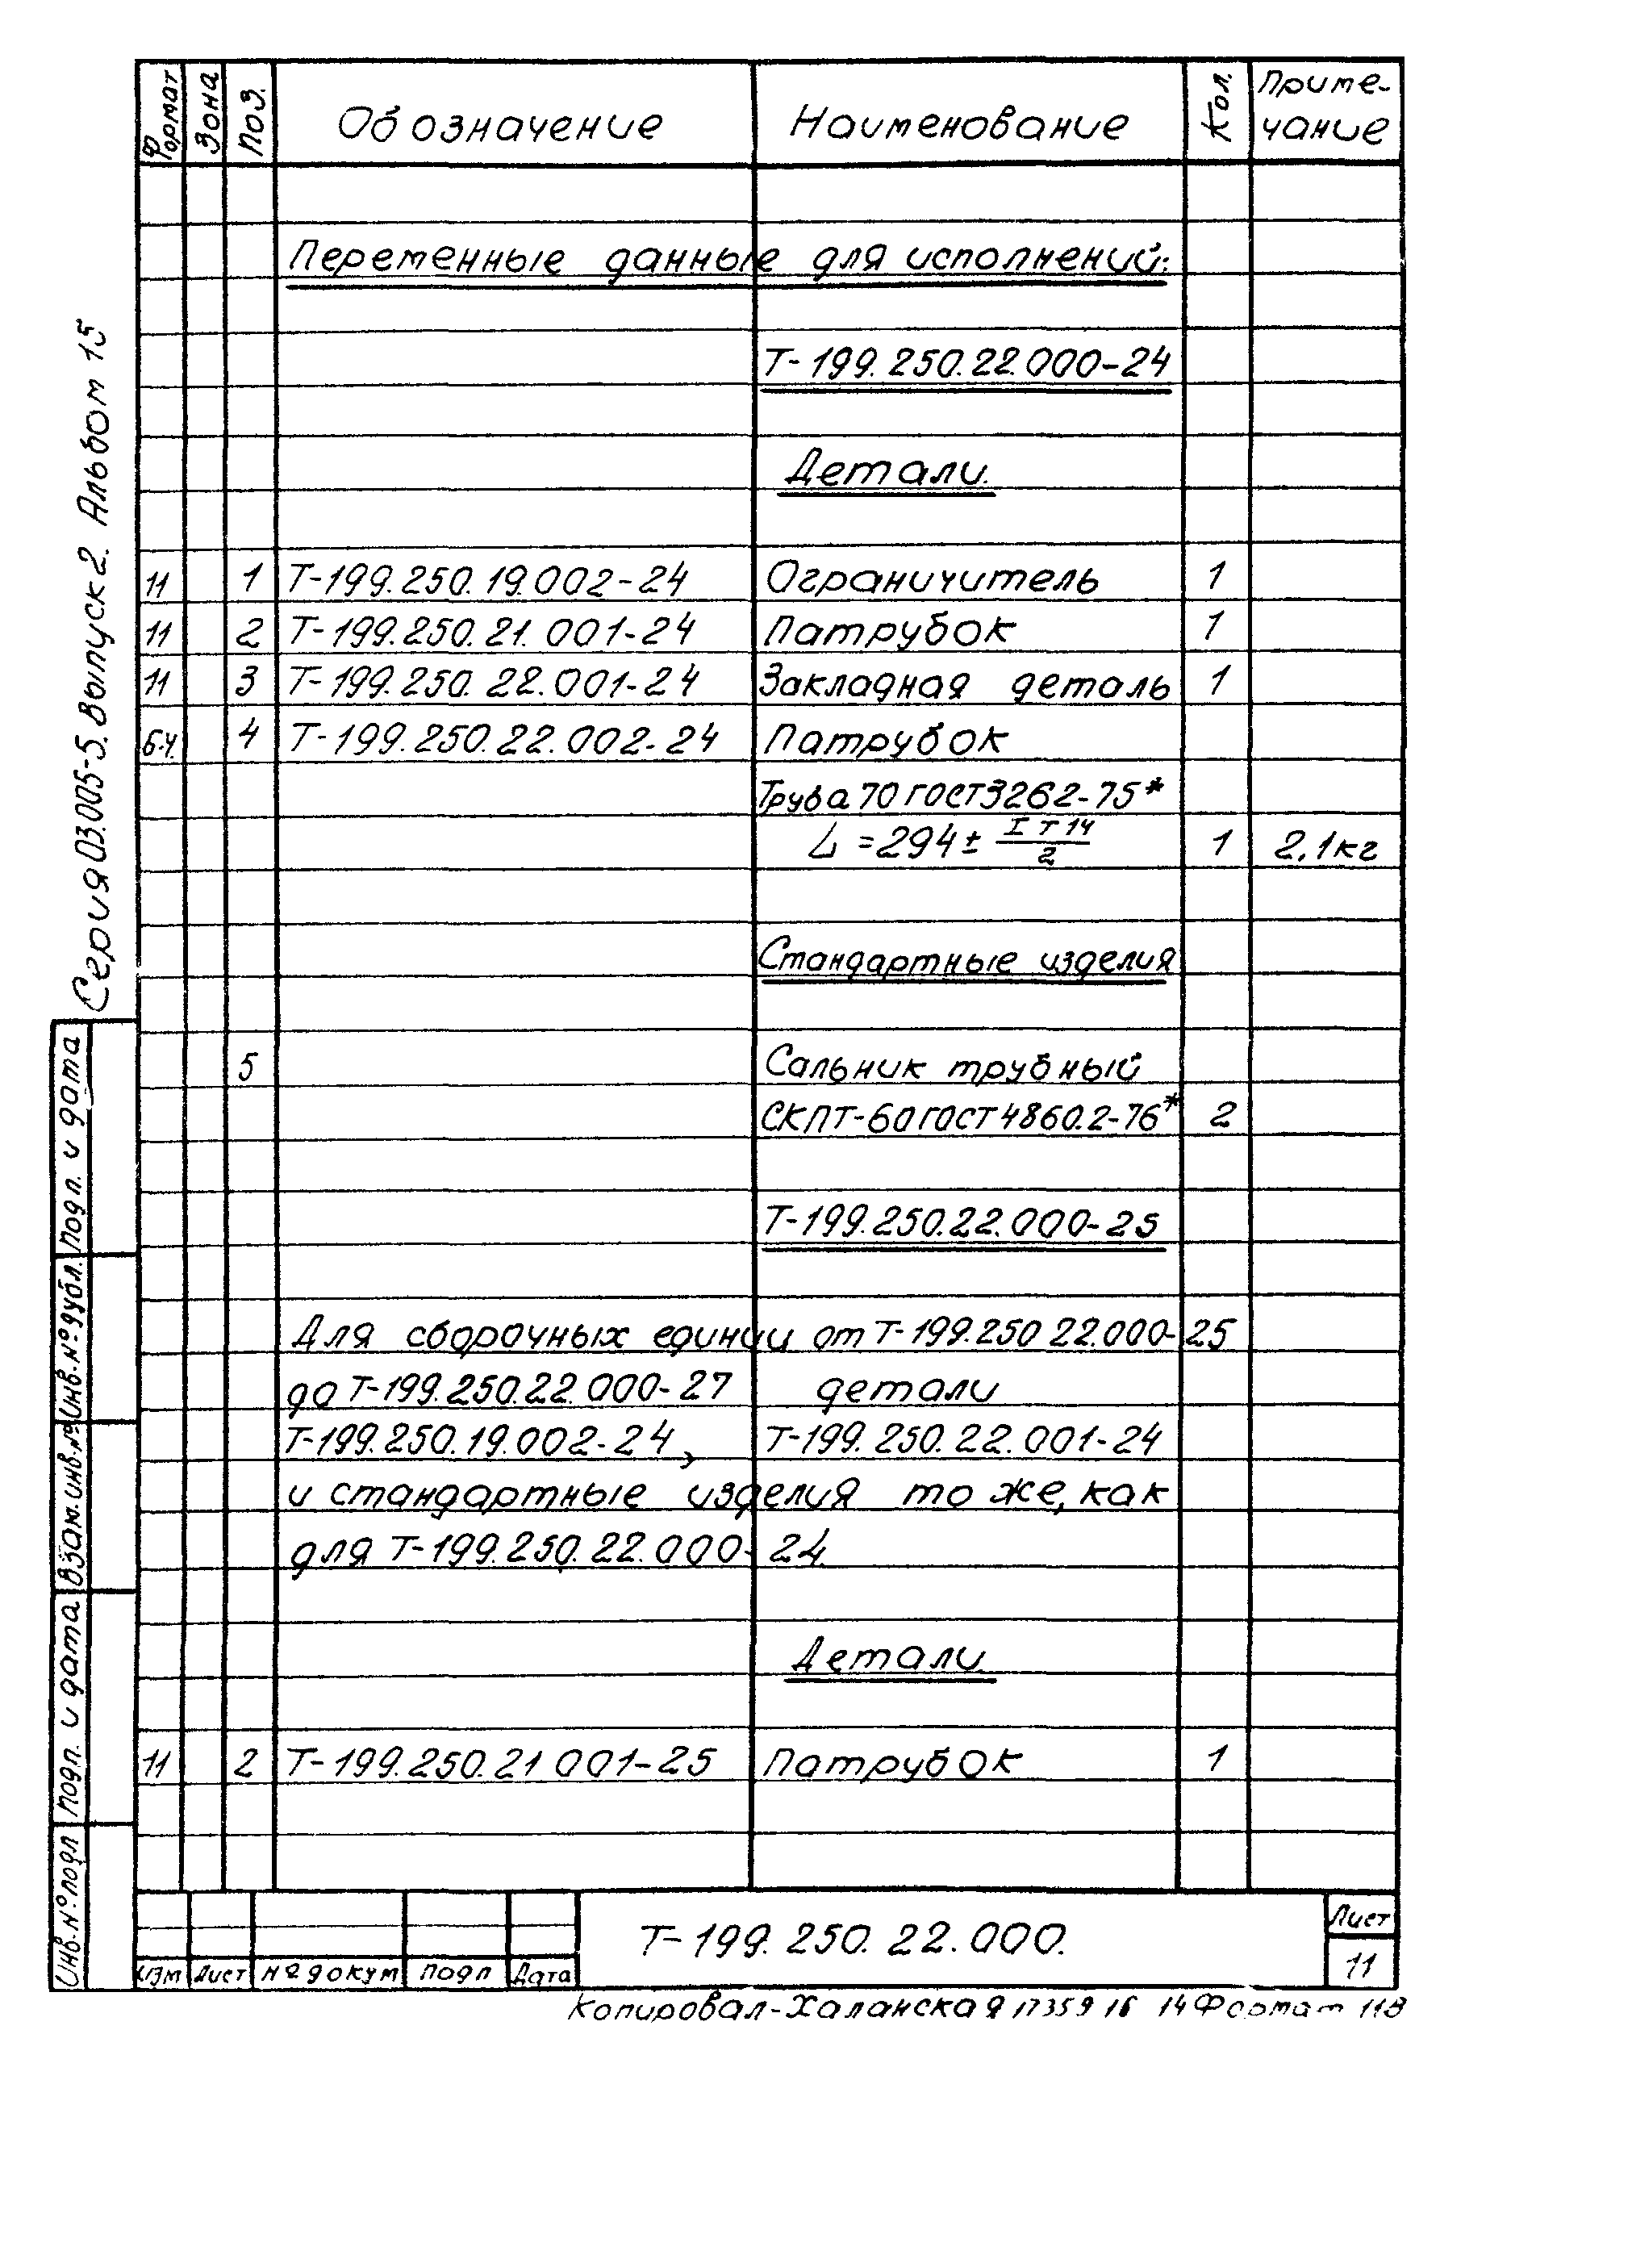 Формат Зона Поз. Обозначение Наименование Кол. Приме-
чание
Переменные данные для исполнений:
Т-199.250.22.000-24
Детали.
11 1 Т-199.250.19.002-24 Ограничитель 1
11 2 Т-199.250.21.001-24 Патрубок 1
11 3 Т-199.250.22.001-24 Закладная деталь 1
Б.Ч. 4 Т-199.250.22.002-24 Патрубок
Труба 70 ГОСТ 3262-75*
L = 294 ± IT14/2 1 2,1кг
Стандартные изделия
5 Сальник трубный
СКПТ-60 ГОСТ 4860.2-76* 2
Т-199.250.22.000-25
Для сборочных единиц от Т-199.250 22.000-25
до Т-199.250.22.000-27 детали
Т-199.250.19.002-24, Т-199.250.22.001-24
и стандартные изделия то же, как
для Т-199.250.22.000-24
Детали
11 2 Т-199.250.21 001-25 Патрубок 1
Серия 03.005-5. Выпуск 2. Альбом 15
Подп. и дата
Инв.№дубл.
Взам.инв.№
Подп. и дата
Инв.№подл
Изм Лист №докум Подп Дата
Т-199.250.22.000.
Лист
11
Копировал-Халанская 17359 16 14 Формат 11В